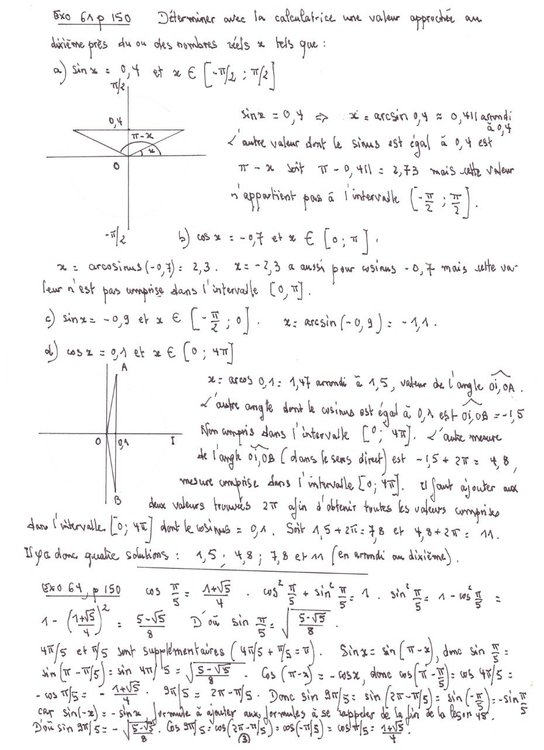 Exo 61 p 150 Déterminer avec la calculatrice une valeur approchée au
dixième près du ou des nombres réels x tels que :
a) sin x = 0,4 et x ∈ [-π/2 ; π/2]
π/2
0,4
π-x
x
0
-π/2
sin x = 0,4 ⇒ x = arcsin 0,4 ≈ 0,411 arrondi
à 0,4
L'autre valeur dont le sinus est égal à 0,4 est
π - x soit π - 0,411 = 2,73 mais cette valeur
n'appartient pas à l'intervalle [-π/2 ; π/2].
b) cos x = -0,7 et x ∈ [0 ; π].
x = arcosinus(-0,7) = 2,3. x = -2,3 a aussi pour cosinus -0,7 mais cette va-
leur n'est pas comprise dans l'intervalle [0, π].
c) sin x = -0,9 et x ∈ [-π/2 ; 0]. x = arcsin(-0,9) = -1,1.
d) cos x = 0,1 et x ∈ [0 ; 4π]
A
0
0,1
I
B
x = arcos 0,1 = 1,47 arrondi à 1,5, valeur de l'angle OI,OA.
L'autre angle dont le cosinus est égal à 0,1 est OI,OB = -1,5
Non compris dans l'intervalle [0 ; 4π]. L'autre mesure
de l'angle OI,OB (dans le sens direct) est -1,5 + 2π = 4,8,
mesure comprise dans l'intervalle [0 ; 4π]. Il faut ajouter aux
deux valeurs trouvées 2π afin d'obtenir toutes les valeurs comprises
dans l'intervalle [0 ; 4π] dont le cosinus = 0,1. Soit 1,5 + 2π = 7,8 et 4,8 + 2π = 11.
Il y a donc quatre solutions : 1,5 ; 4,8 ; 7,8 et 11 (en arrondi au dixième).
Exo 64, p 150 cos π/5 = (1+√5)/4 . cos² π/5 + sin² π/5 = 1. sin² π/5 = 1 - cos² π/5 =
1 - ((1+√5)/4)² = (5-√5)/8 D'où sin π/5 = √((5-√5)/8)
4π/5 et π/5 sont supplémentaires (4π/5 + π/5 = π). Sin x = sin(π-x), donc sin π/5 =
sin(π - π/5) = sin 4π/5 = √((5-√5)/8) Cos(π-x) = -cos x, donc cos(π - π/5) = cos 4π/5 =
-cos π/5 = -(1+√5)/4 . 9π/5 = 2π - π/5. Donc sin 9π/5 = sin(2π - π/5) = sin(-π/5) = -sin π/5
car sin(-x) = -sin x formule à ajouter aux formules à se rappeler de la fin de la leçon 48.
D'où sin 9π/5 = -√((5-√5)/8). Cos 9π/5 = cos(2π - π/5) = cos(-π/5) = cos π/5 = (1+√5)/4
(3)